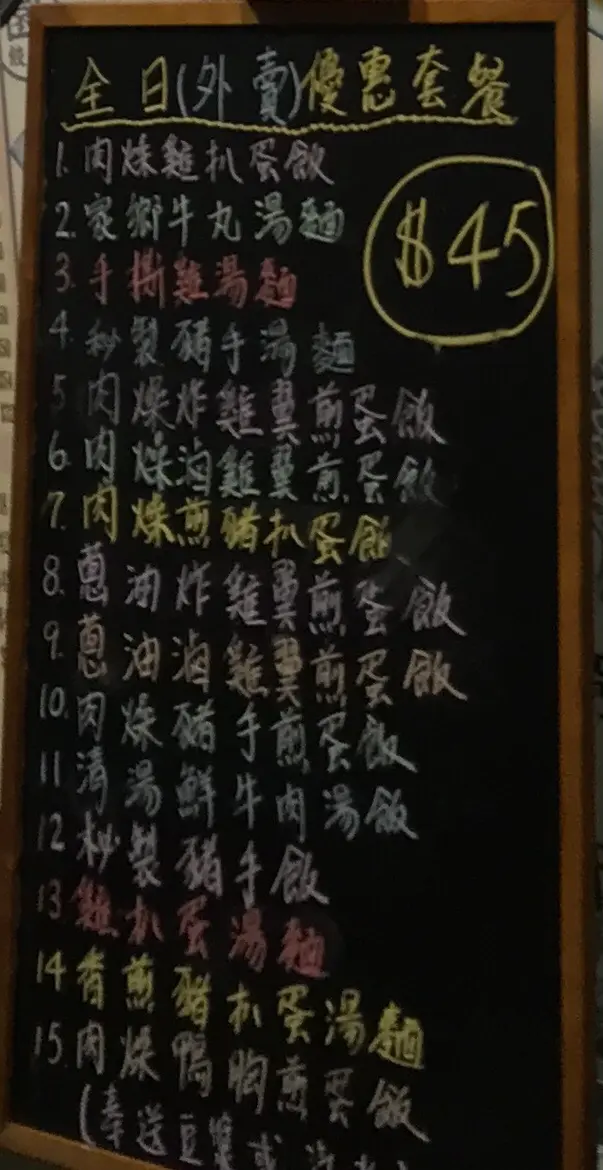 全日(外賣)優惠套餐
$45
1. 肉燥雞扒蛋飯
2. 家鄉牛丸湯麵
3. 手撕雞湯麵
4. 秘製豬手湯麵
5. 肉燥炸雞翼煎蛋飯
6. 肉燥滷雞翼煎蛋飯
7. 肉燥煎豬扒蛋飯
8. 蔥油炸雞翼煎蛋飯
9. 蔥油滷雞翼煎蛋飯
10. 肉燥豬手煎蛋飯
11. 清湯鮮牛肉湯飯
12. 秘製豬手飯
13. 雞扒蛋湯麵
14. 香煎豬扒蛋湯麵
15. 肉燥鴨胸煎蛋飯
(奉送豆漿或